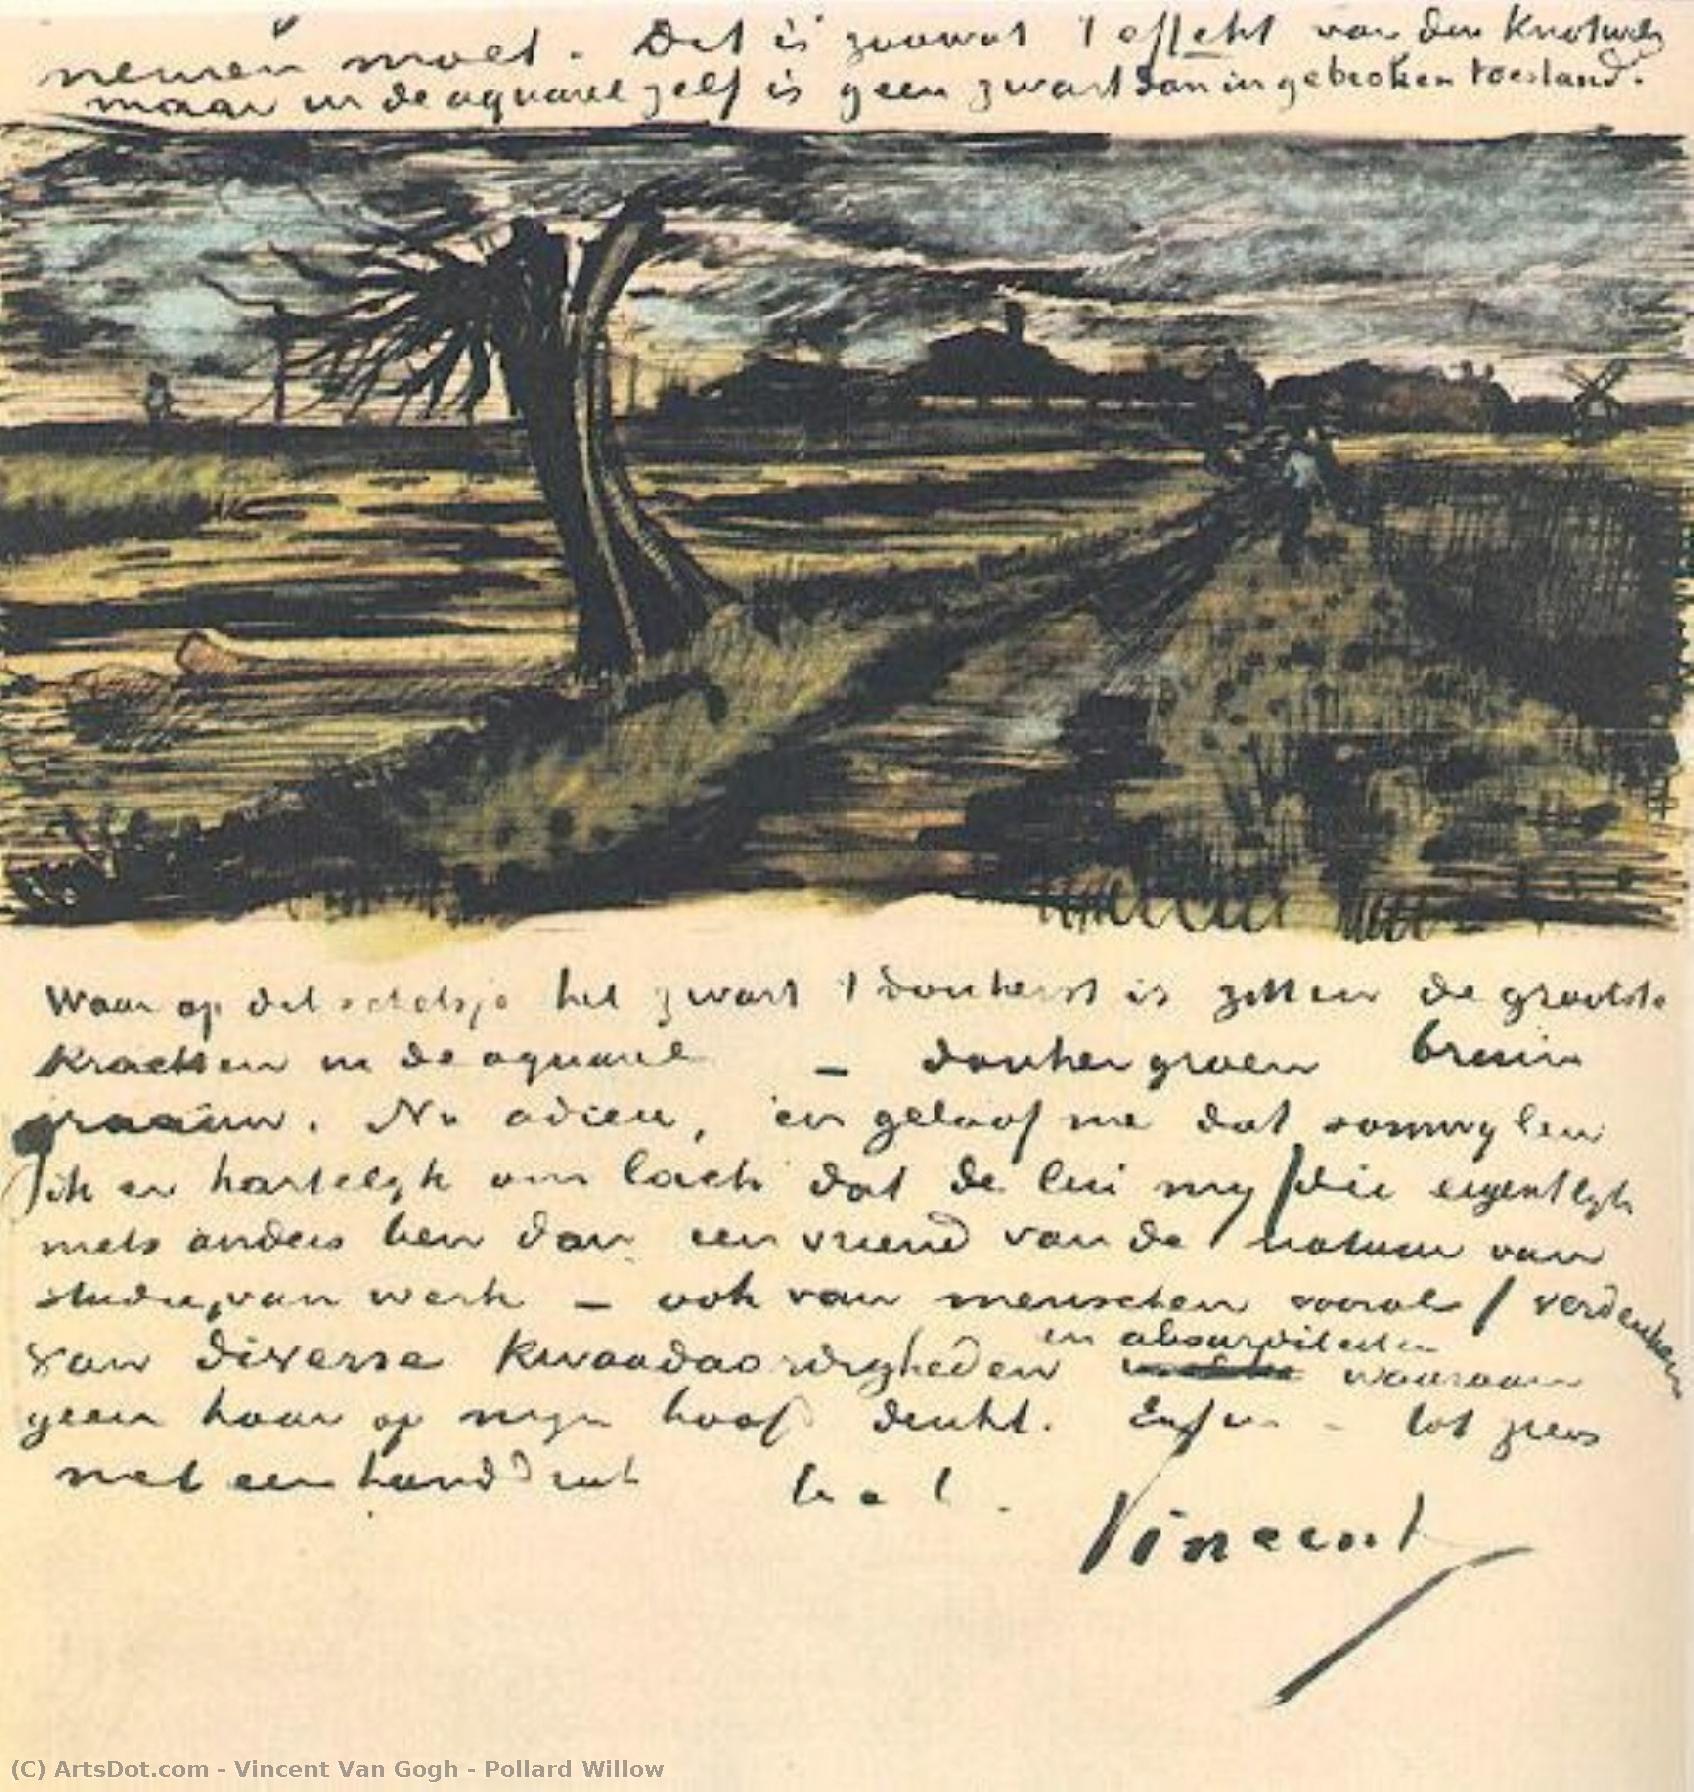 nemen moet. Dit is zoowat 't effekt van den Knotwilg
maar in de aquarel zelf is geen zwart dan in gebroken toestand.
Waar op dit schetsje het zwart 't donkerst is zitten de grootste
krachten in de aquarel – donkergroen bruin
graauw. Nu adieu, en geloof me dat somwylen
ik er hartelyk om lach dat de lui my / die eigentlyk
niets anders ben dan een vriend van de natuur van
studie, van werk – ook van menschen vooral / verdenken
van diverse kwaadaardigheden en absurditeiten waaraan
geen haar op myn hoofd denkt. Enfin – tot ziens
met een handdruk t. à. t.
Vincent
(C) ArtsDot.com - Vincent Van Gogh - Pollard Willow